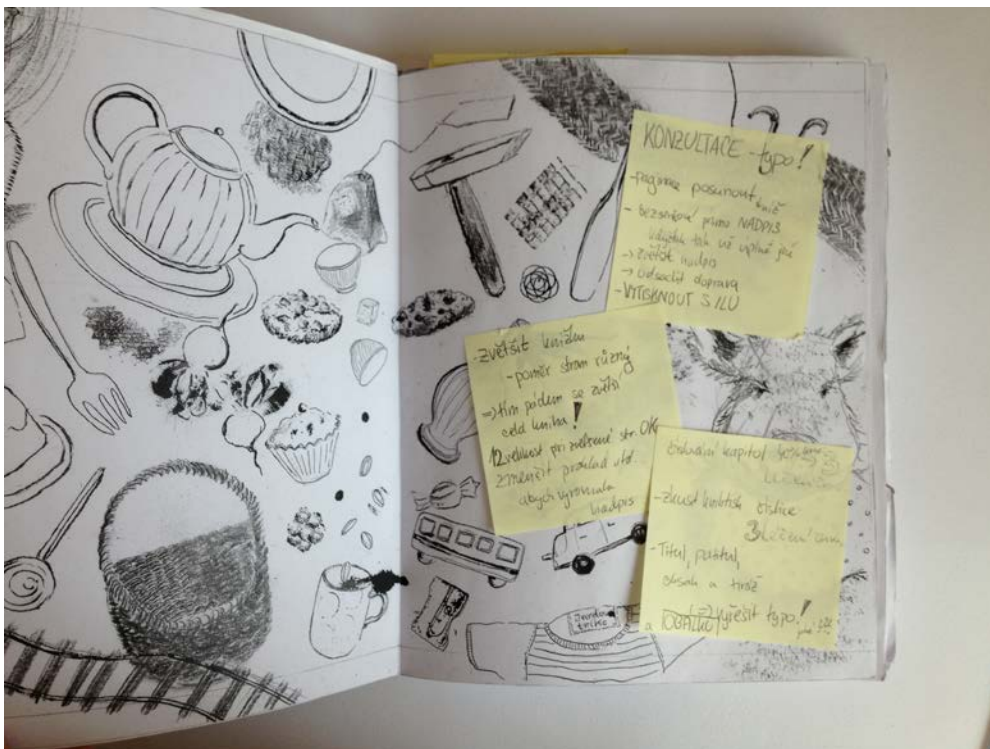 KONZULTACE - typo!
- paginace posunout níž
- bezserifové písmo NADPIS
když tak už úplně jiné
-> zvětšit nadpis
-> odsadit doprava
- VYTISKNOUT SILU
- zvětšit knížku
- poměr stran různý
=> tím pádem se zvětší
celá kniha!
12 velikost při zvětšené str. OK
zmenšit proklad
abych vyrovnala
nadpis
číslování kapitol
- zkusit číslice
3
- Titul, patitul,
obsah a tiráž
a OBÁLKU vyřešit typo!